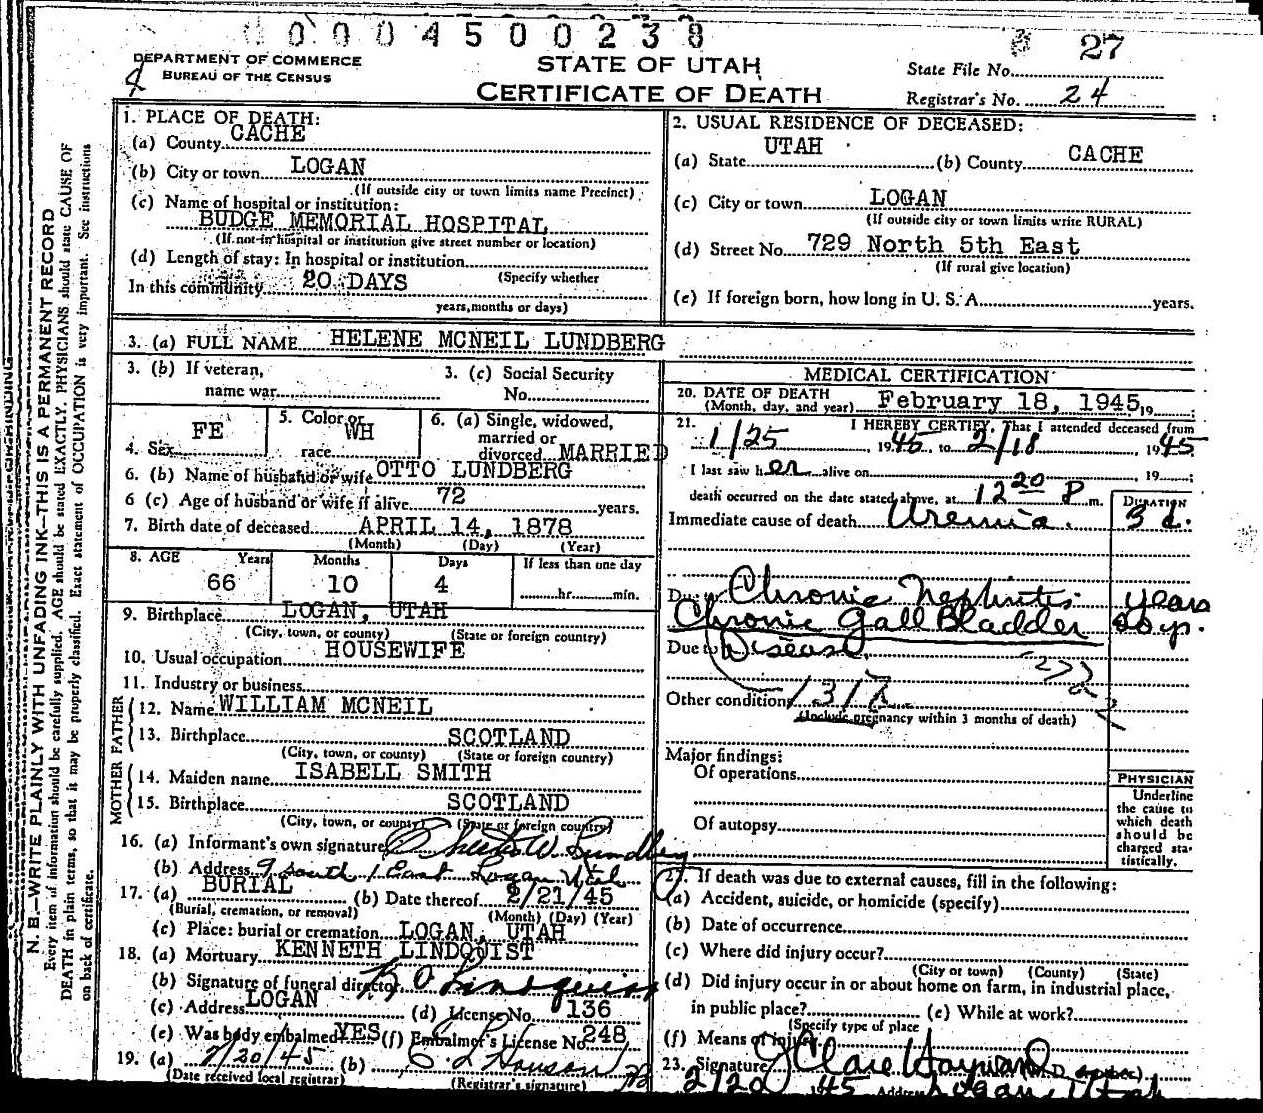 0004500238
DEPARTMENT OF COMMERCE
BUREAU OF THE CENSUS
STATE OF UTAH
CERTIFICATE OF DEATH
State File No. 27
Registrar's No. 24
N. B.—WRITE PLAINLY WITH UNFADING INK—THIS IS A PERMANENT RECORD
Every item of information should be carefully supplied. AGE should be stated EXACTLY. PHYSICIANS should state CAUSE OF
DEATH in plain terms, so that it may be properly classified. Exact statement of OCCUPATION is very important. See instructions
on back of certificate.
1. PLACE OF DEATH:
(a) County CACHE
(b) City or town LOGAN
(If outside city or town limits name Precinct)
(c) Name of hospital or institution:
BUDGE MEMORIAL HOSPITAL
(If not in hospital or institution give street number or location)
(d) Length of stay: In hospital or institution
(Specify whether
In this community 20 DAYS
years, months or days)
2. USUAL RESIDENCE OF DECEASED:
(a) State UTAH (b) County CACHE
(c) City or town LOGAN
(If outside city or town limits write RURAL)
(d) Street No. 729 North 5th East
(If rural give location)
(e) If foreign born, how long in U. S. A. years.
3. (a) FULL NAME HELENE MCNEIL LUNDBERG
3. (b) If veteran,
name war
3. (c) Social Security
No.
4. Sex FE
5. Color or
race WH
6. (a) Single, widowed,
married or
divorced MARRIED
6. (b) Name of husband or wife OTTO LUNDBERG
6 (c) Age of husband or wife if alive 72 years.
7. Birth date of deceased APRIL 14, 1878
(Month) (Day) (Year)
8. AGE Years Months Days If less than one day
66 10 4 hr. min.
9. Birthplace LOGAN, UTAH
(City, town, or county) (State or foreign country)
10. Usual occupation HOUSEWIFE
11. Industry or business
FATHER
12. Name WILLIAM MCNEIL
13. Birthplace SCOTLAND
(City, town, or county) (State or foreign country)
MOTHER
14. Maiden name ISABELL SMITH
15. Birthplace SCOTLAND
(City, town, or county) (State or foreign country)
16. (a) Informant's own signature W. Lundberg
(b) Address 9 South 1 East Logan Utah
17. (a) BURIAL (b) Date thereof 2/21/45
(Burial, cremation, or removal) (Month) (Day) (Year)
(c) Place: burial or cremation LOGAN, UTAH
18. (a) Mortuary KENNETH LINDQUIST
(b) Signature of funeral director K O Lindquist
(c) Address LOGAN (d) License No. 136
(e) Was body embalmed YES (f) Embalmer's License No. 248
19. (a) 2/20/45 (b)
(Date received local registrar) (Registrar's signature)
MEDICAL CERTIFICATION
20. DATE OF DEATH
(Month, day, and year) February 18, 1945 19
21. I HEREBY CERTIFY, That I attended deceased from
1/25 1945, to 2/18, 1945
I last saw her alive on 19
death occurred on the date stated above, at 12 20 P m.
DURATION
Immediate cause of death Uremia. 3 d.
Due to Chronic Nephritis years
Chronic Gall Bladder 20 yr.
Due to Disease
Other conditions 131
(Include pregnancy within 3 months of death)
Major findings:
Of operations
Of autopsy
PHYSICIAN
Underline
the cause to
which death
should be
charged sta-
tistically.
22. If death was due to external causes, fill in the following:
(a) Accident, suicide, or homicide (specify)
(b) Date of occurrence
(c) Where did injury occur?
(City or town) (County) (State)
(d) Did injury occur in or about home on farm, in industrial place,
in public place? (e) While at work?
(Specify type of place
(f) Means of injury
23. Signature J Clare Hayward
2/20 45 Address Logan, Utah